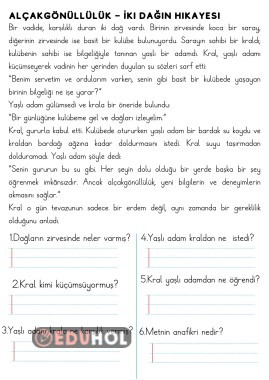 ALÇAKGÖNÜLLÜLÜK – İKİ DAĞIN HİKAYESİ
Bir vadide, karşılıklı duran iki dağ vardı. Birinin zirvesinde koca bir saray,
diğerinin zirvesinde ise basit bir kulübe bulunuyordu. Sarayın sahibi bir kraldı;
kulübenin sahibi ise bilgeliğiyle tanınan yaşlı bir adamdı. Kral, yaşlı adamı
küçümseyerek vadinin her yerinden duyulan şu sözleri sarf etti:
"Benim servetim ve ordularım varken, senin gibi basit bir kulübede yaşayan
birinin bilgeliği ne işe yarar?"
Yaşlı adam gülümsedi ve krala bir öneride bulundu:
"Bir günlüğüne kulübeme gel ve dağları izleyelim."
Kral, gururla kabul etti. Kulübede otururken yaşlı adam bir bardak su koydu ve
kraldan bardağı ağzına kadar doldurmasını istedi. Kral suyu taşırmadan
dolduramadı. Yaşlı adam şöyle dedi:
"Senin gururun bu su gibi. Her şeyin dolu olduğu bir yerde başka bir şey
öğrenmek imkânsızdır. Ancak alçakgönüllülük, yeni bilgilerin ve deneyimlerin
akmasını sağlar."
Kral o gün tevazunun sadece bir erdem değil, aynı zamanda bir gereklilik
olduğunu anladı.
1.Dağların zirvesinde neler varmış?
2.Kral kimi küçümsüyormuş?
3.Yaşlı
EDUHOL
4.Yaşlı adam kraldan ne istedi?
5.Kral yaşlı adamdan ne öğrendi?
6.Metnin anafikri nedir?